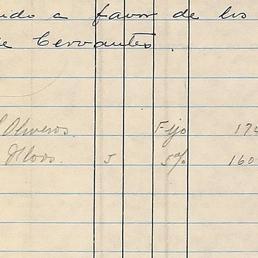 ndo a favor de los
e Cervantes.
Oliveros. Fijo 17
Hlos. J 5% 160